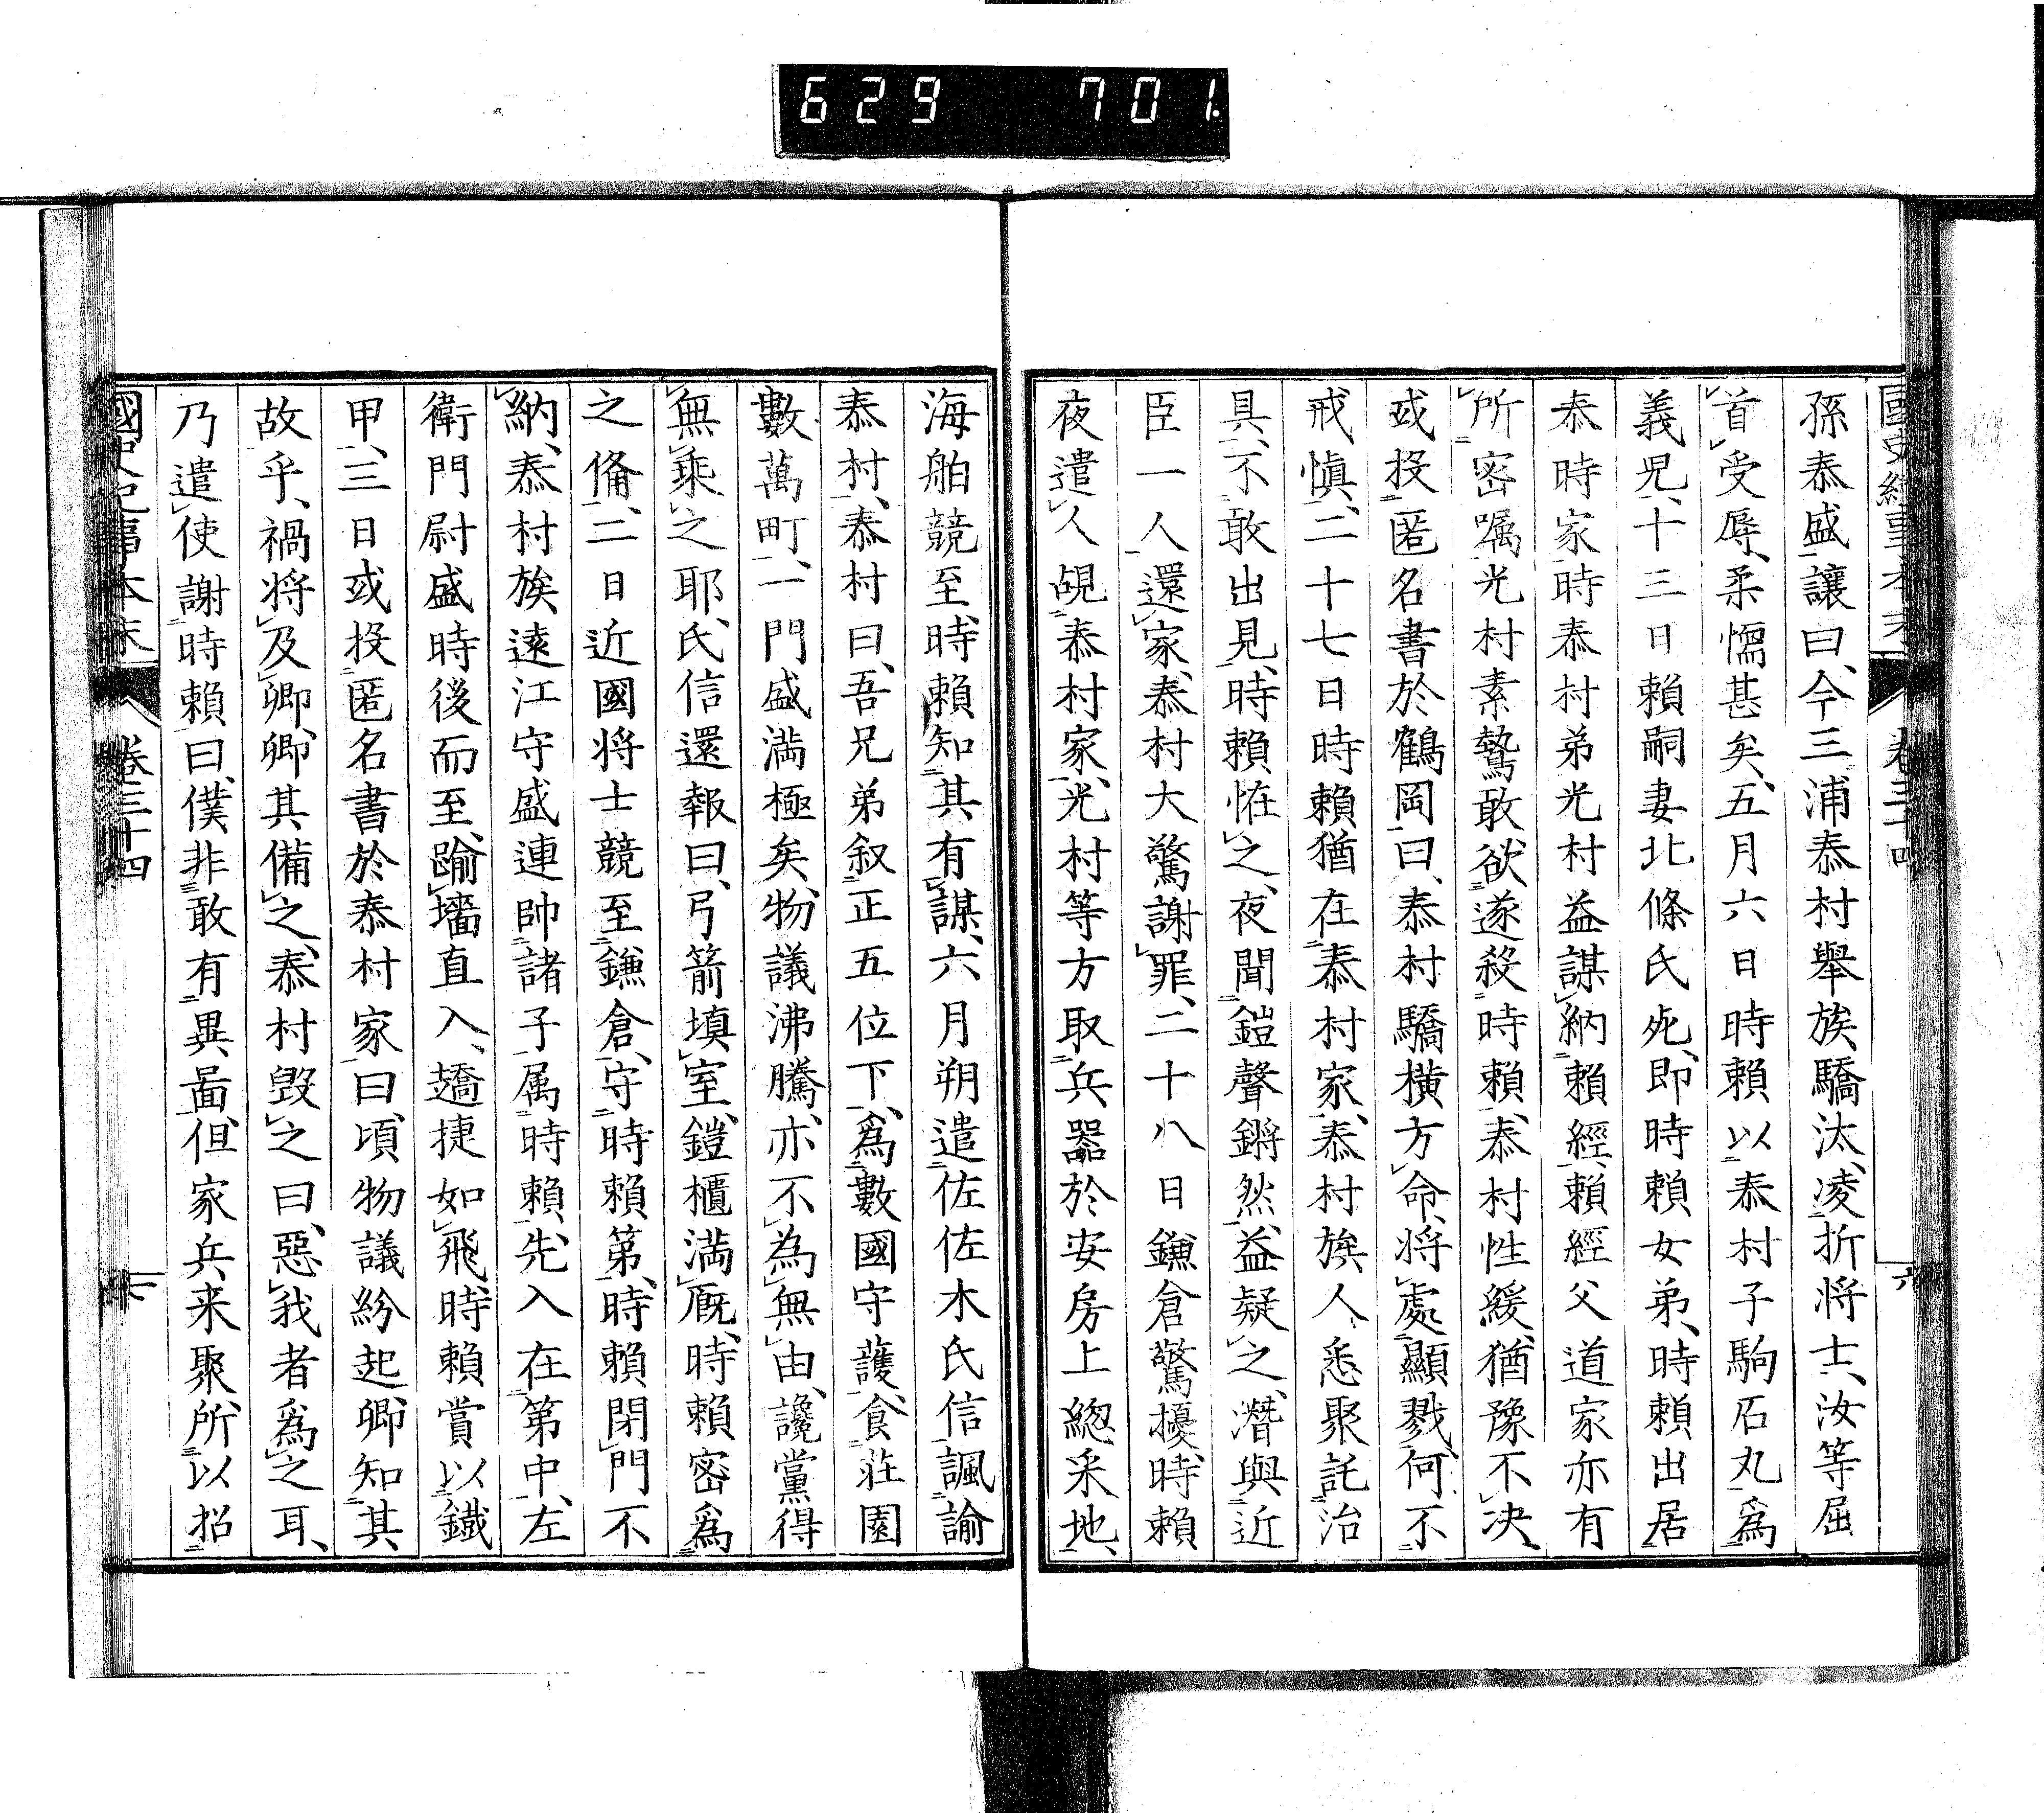 629 701
孫泰盛讓曰、今三浦泰村舉族驕汰、凌折将士、汝等屈
首受辱、柔懦甚矣、五月六日時賴以泰村子駒石丸爲
義兒、十三日賴嗣妻北條氏死、即時賴女弟、時賴出居
泰時家、時泰村弟光村益謀納賴經、賴經父道家亦有
所密嘱、光村素驁敢、欲遂殺時賴、泰村性緩、猶豫不决、
或投匿名書於鶴岡曰、泰村驕横方命、将處顯戮、何不
戒愼、二十七日時賴猶在泰村家、泰村族人悉聚、託治
具、不敢出見、時賴恠之、夜聞鎧聲鏘然、益疑之、潛與近
臣一人還家、泰村大驚謝罪、二十八日鎌倉驚擾、時賴
夜遣人覘泰村家、光村等方取兵器於安房上總采地、
海舶競至、時賴知其有謀、六月朔遣佐佐木氏信諷諭
泰村、泰村曰、吾兄弟叙正五位下、爲數國守護、食莊園
數萬町、一門盛満極矣、物議沸騰、亦不為無由、讒黨得
無乘之耶、氏信還報曰、弓箭填室、鎧櫃満廐、時賴密爲
之備、二日近國将士競至鎌倉、守時賴第、時賴閉門不
納、泰村族遠江守盛連帥諸子属時賴、先入在第中、左
衛門尉盛時後而至、踰墻直入、趫捷如飛、時賴賞以鐵
甲、三日或投匿名書於泰村家曰、頃物議紛起、卿知其
故乎、禍将及卿、卿其備之、泰村毀之曰、惡我者爲之耳、
乃遣使謝時賴曰、僕非敢有異啚、但家兵来聚、所以招
國史紀事本末 卷三十四 七